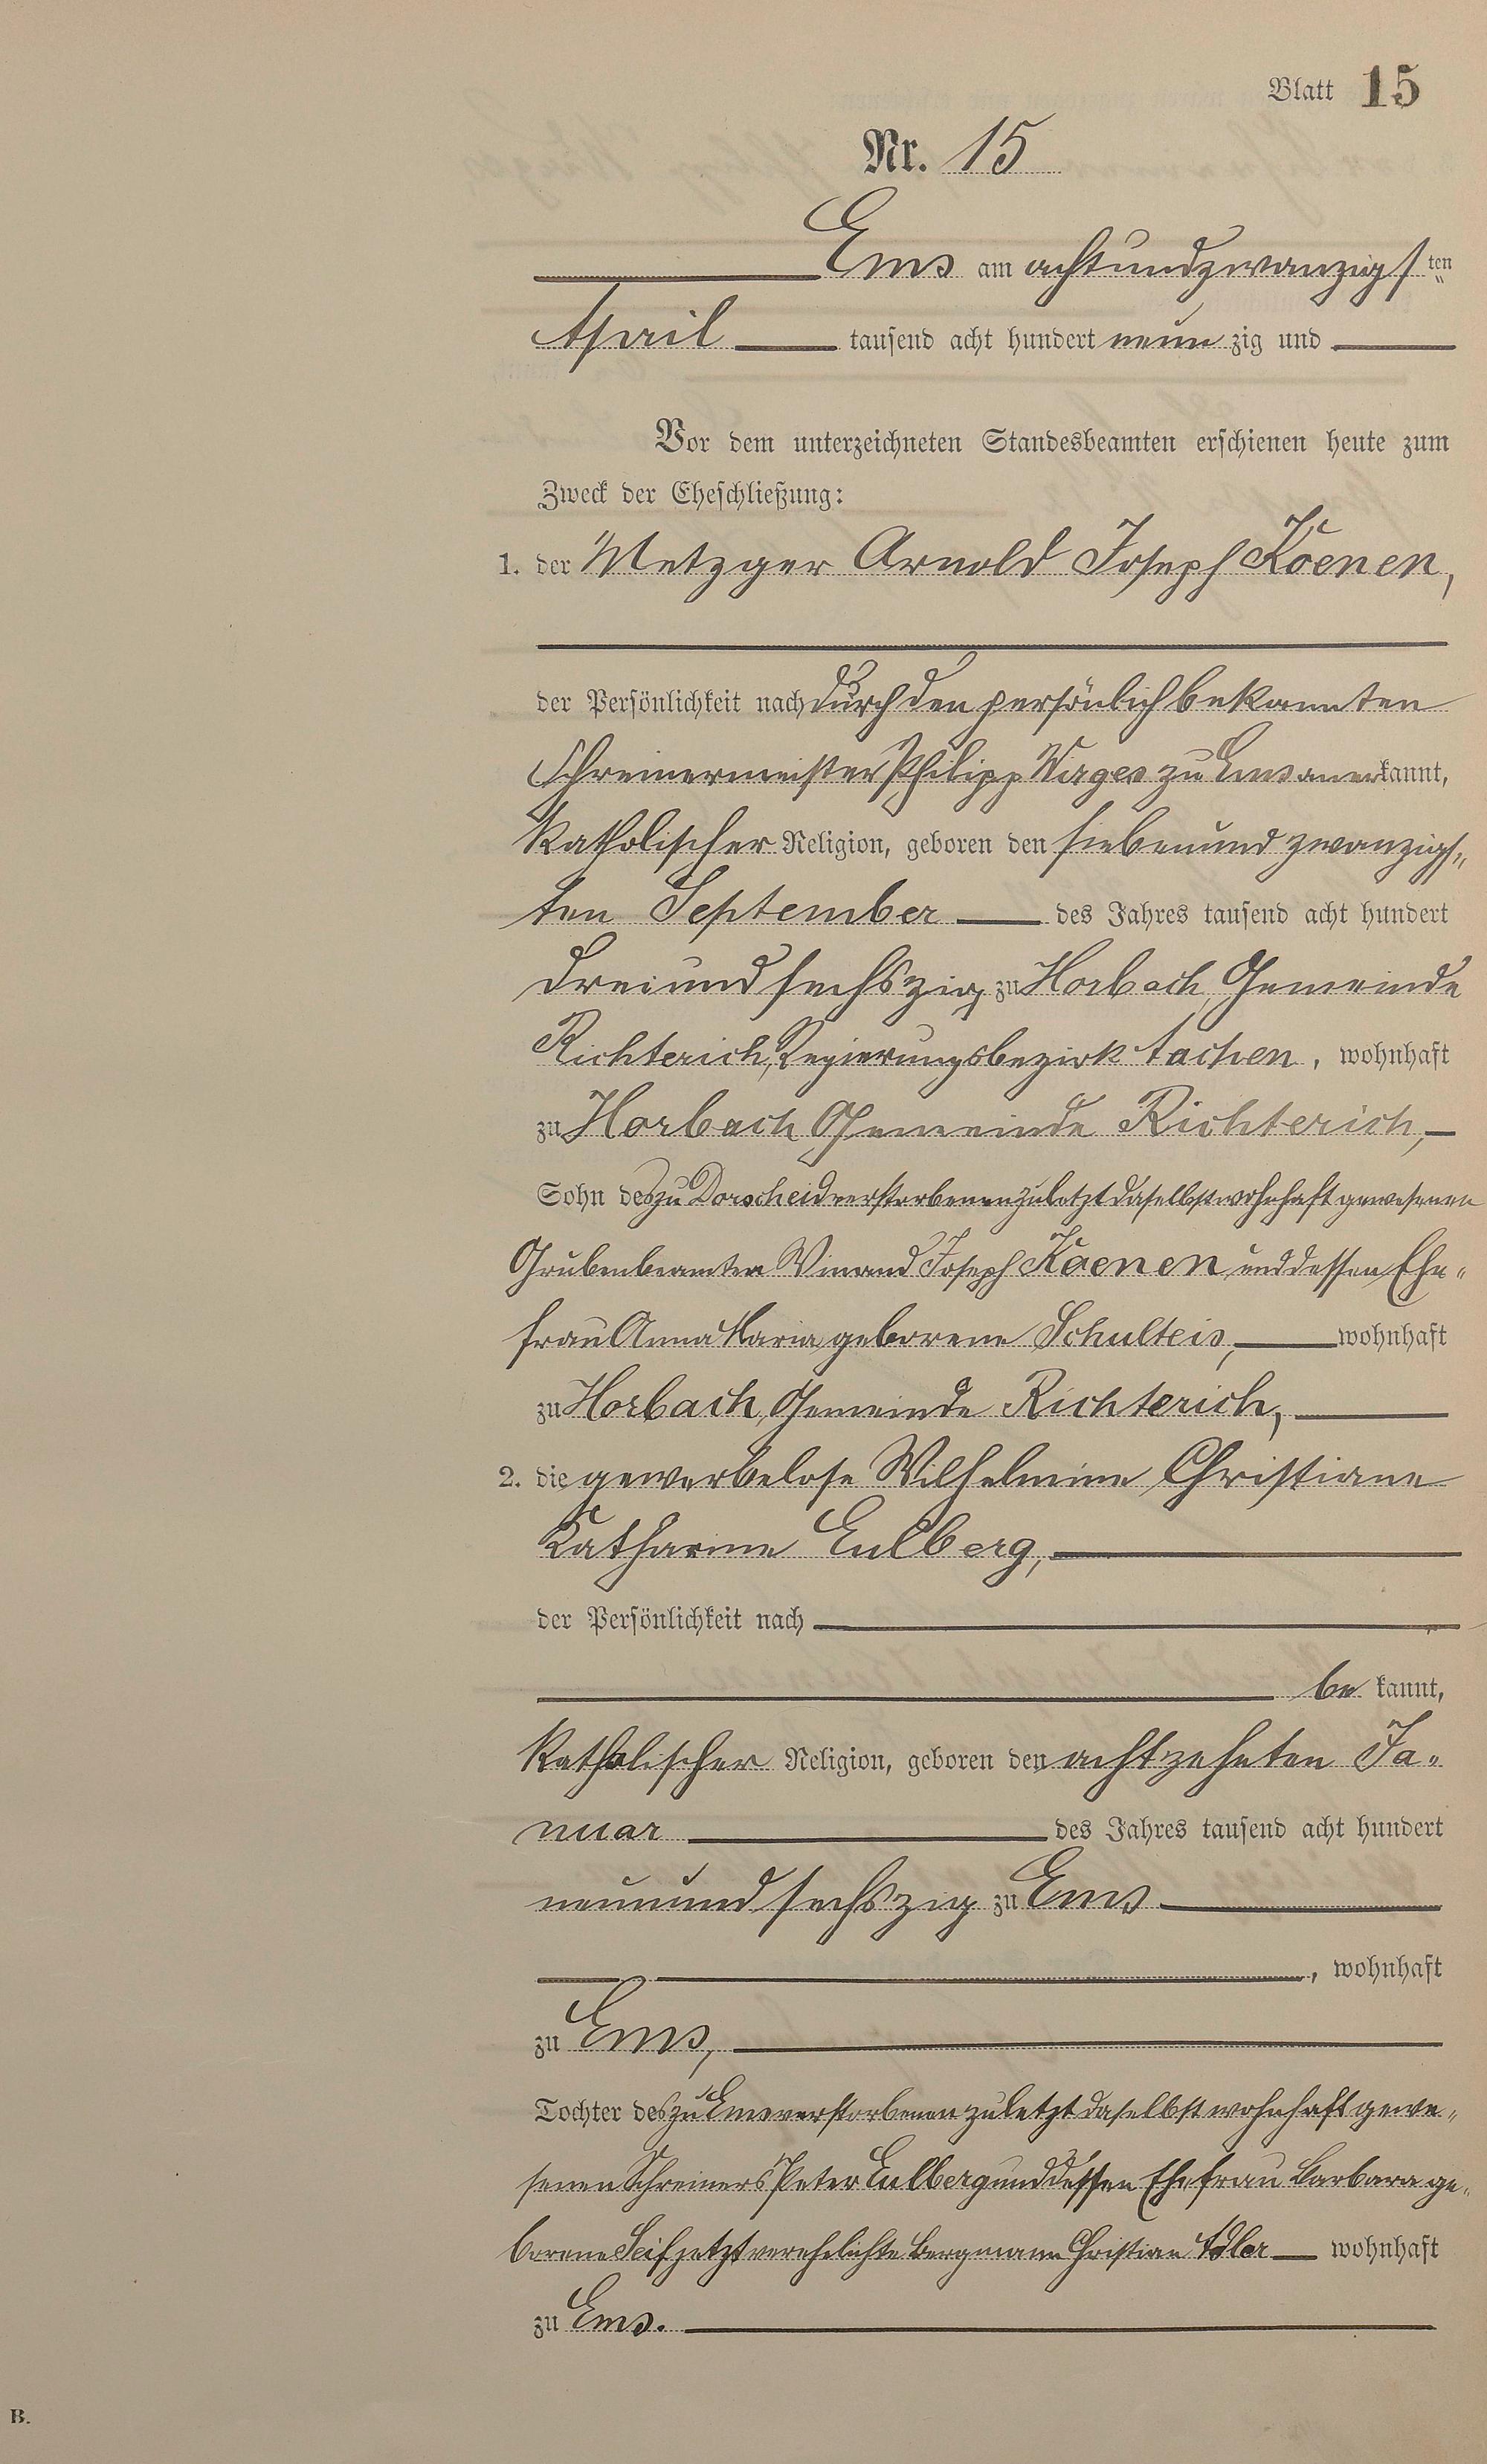 Blatt 15
Nr. 15
Ems am achtundzwanzigsten
April tausend acht hundert neunzig und
Vor dem unterzeichneten Standesbeamten erschienen heute zum
Zweck der Eheschließung:
1. der Metzger Arnold Joseph Koenen,
der Persönlichkeit nach durch den persönlich bekannten
Schreinermeister Philipp Wirges zu Ems anerkannt,
katholischer Religion, geboren den siebenundzwanzigs„
ten September des Jahres tausend acht hundert
dreiundsechszig zu Horbach, Gemeinde
Richterich, Regierungsbezirk Aachen, wohnhaft
zu Horbach Gemeinde Richterich,
Sohn des zu Dorscheid verstorbenen zuletzt daselbst wohnhaft gewesenen
Grubenbeamten Winand Joseph Koenen und dessen Ehe„
frau Anna Maria geborene Schulteis, wohnhaft
zu Horbach, Gemeinde Richterich,
2. die gewerbelose Wilhelmine Christiane
Katharine Eulberg,
der Persönlichkeit nach
be kannt,
katholischer Religion, geboren den achtzehnten Ja„
nuar des Jahres tausend acht hundert
neunundsechszig zu Ems
, wohnhaft
zu Ems,
Tochter des zu Ems verstorbenen zuletzt daselbst wohnhaft gewe„
senen Schreiners Peter Eulberg und dessen Ehefrau Barbara ge„
borene Seif jetzt verehelichte Bergmann Christian Adler wohnhaft
zu Ems.
B.